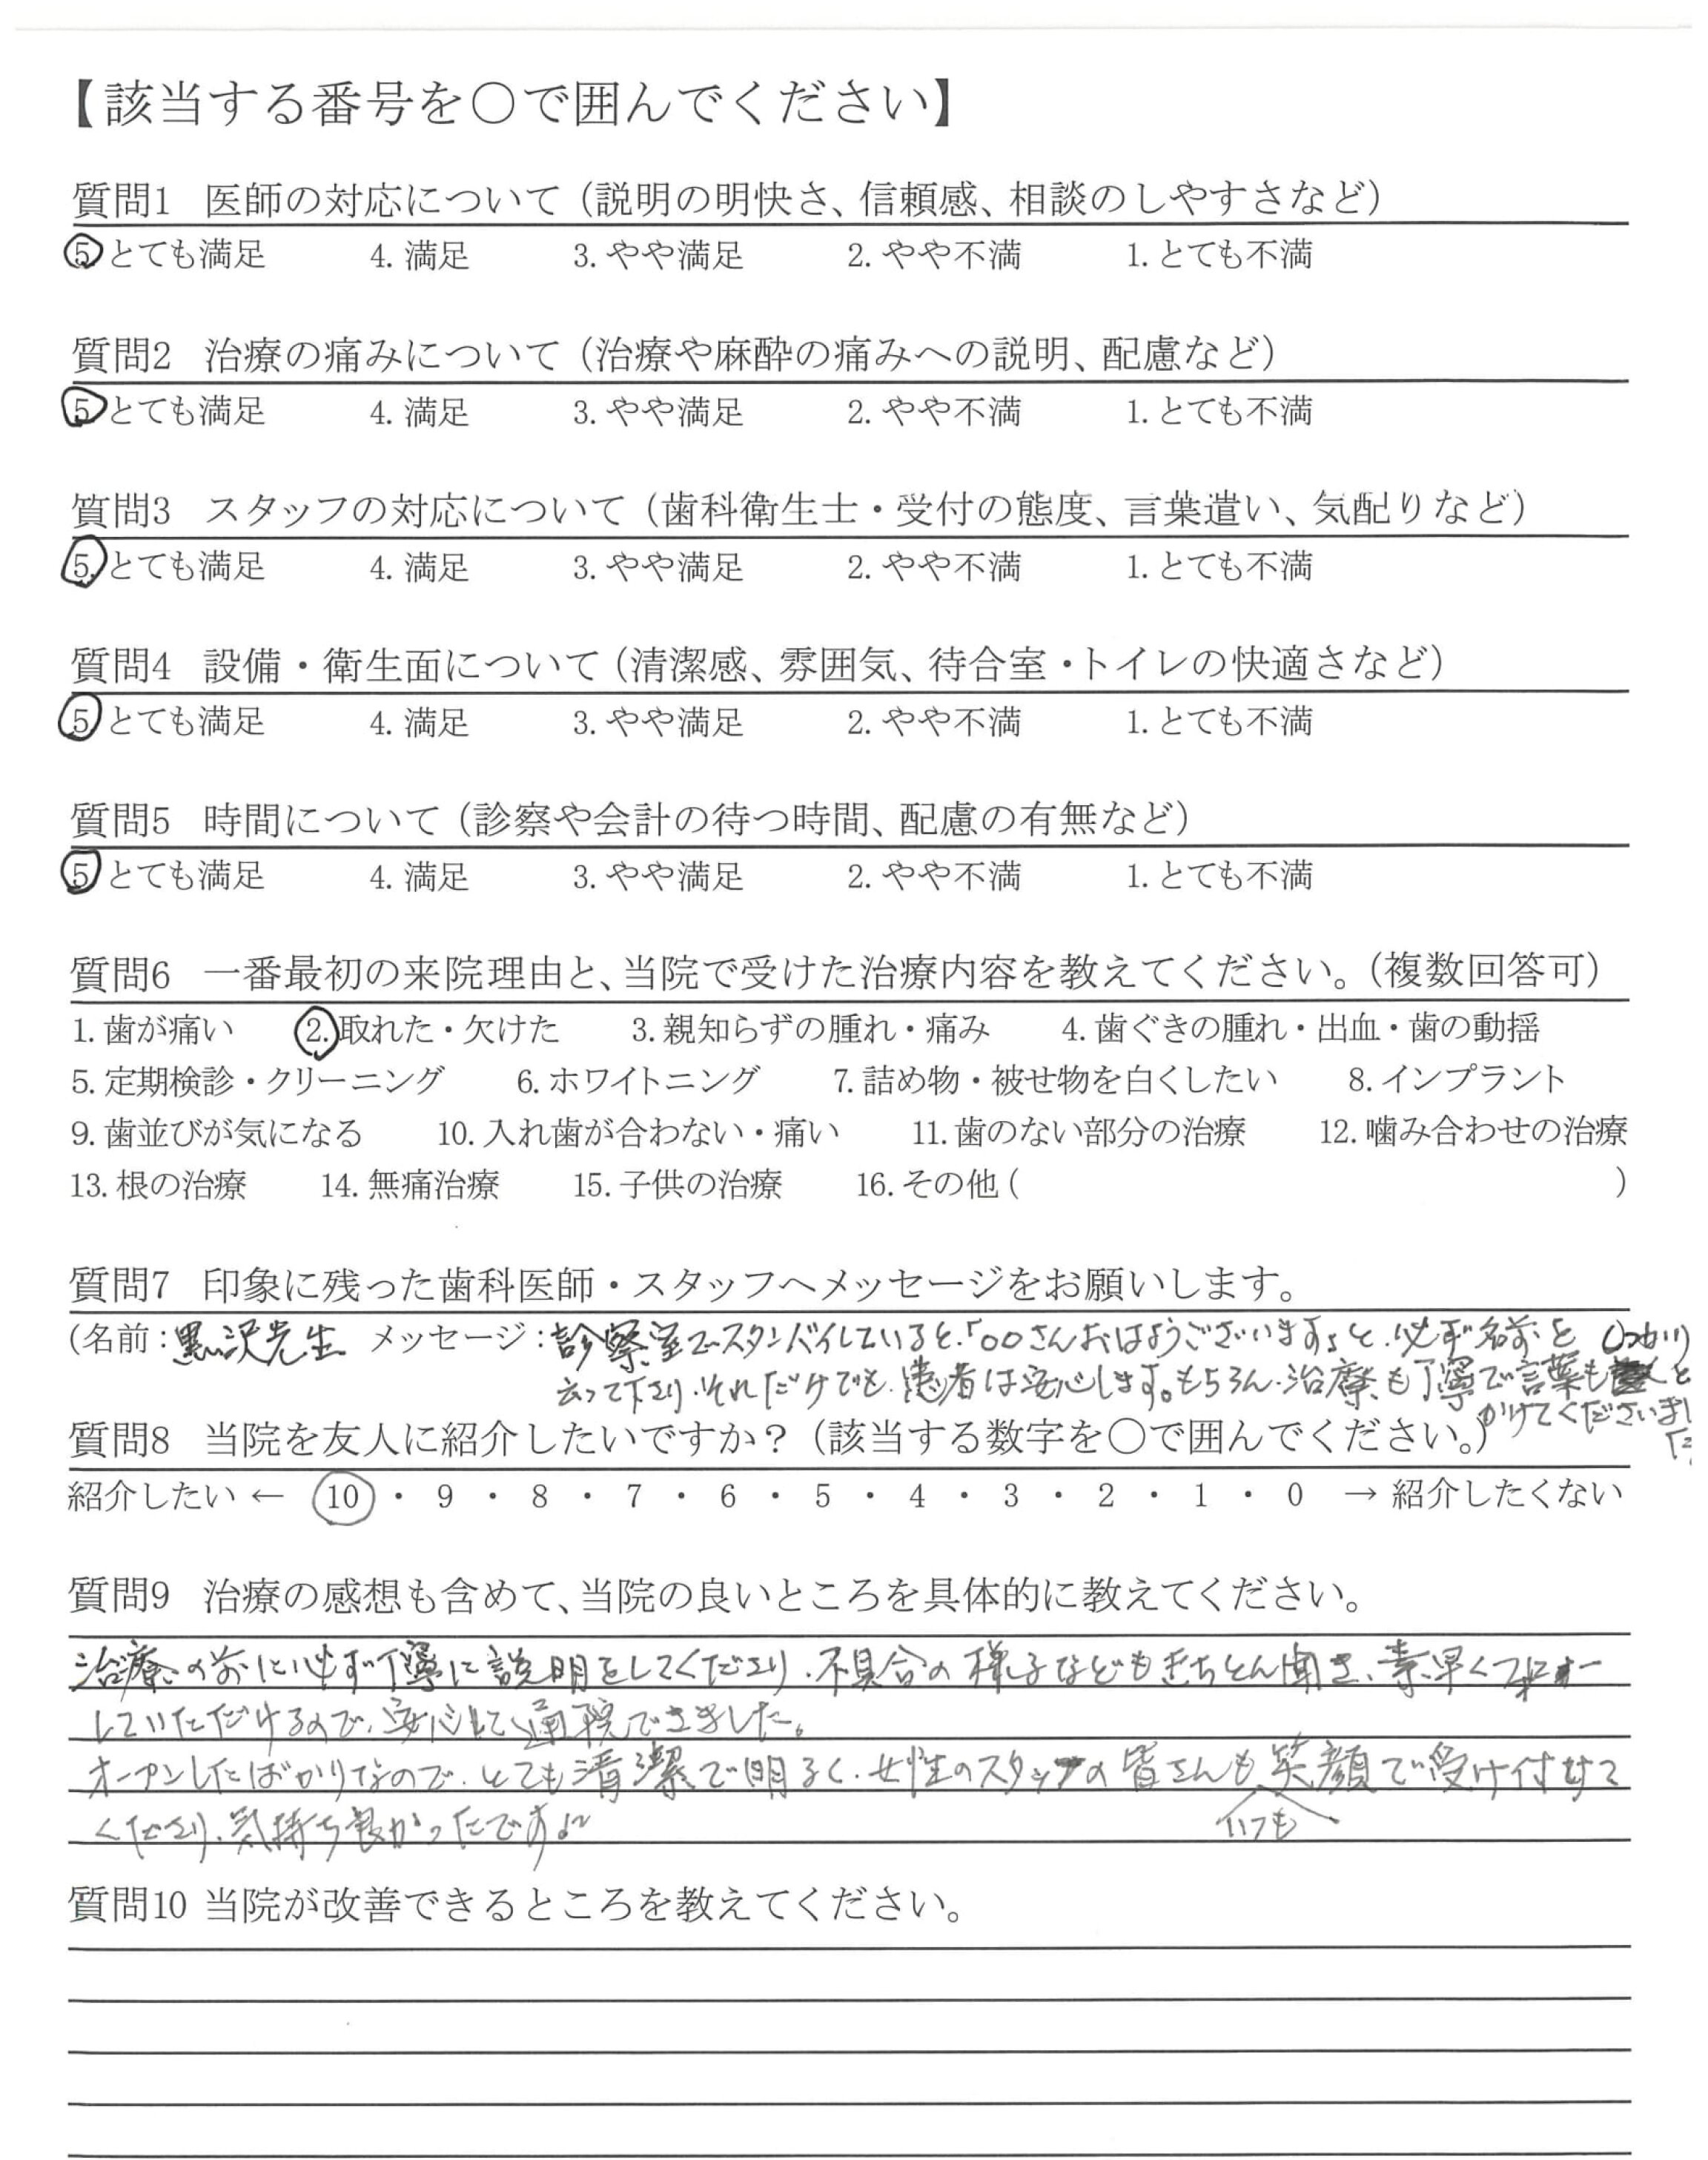 【該当する番号を○で囲んでください】
質問1 医師の対応について（説明の明快さ、信頼感、相談のしやすさなど）
5.とても満足 4.満足 3.やや満足 2.やや不満 1.とても不満
質問2 治療の痛みについて（治療や麻酔の痛みへの説明、配慮など）
5.とても満足 4.満足 3.やや満足 2.やや不満 1.とても不満
質問3 スタッフの対応について（歯科衛生士・受付の態度、言葉遣い、気配りなど）
5.とても満足 4.満足 3.やや満足 2.やや不満 1.とても不満
質問4 設備・衛生面について（清潔感、雰囲気、待合室・トイレの快適さなど）
5.とても満足 4.満足 3.やや満足 2.やや不満 1.とても不満
質問5 時間について（診察や会計の待つ時間、配慮の有無など）
5.とても満足 4.満足 3.やや満足 2.やや不満 1.とても不満
質問6 一番最初の来院理由と、当院で受けた治療内容を教えてください。（複数回答可）
1.歯が痛い 2.取れた・欠けた 3.親知らずの腫れ・痛み 4.歯ぐきの腫れ・出血・歯の動揺
5.定期検診・クリーニング 6.ホワイトニング 7.詰め物・被せ物を白くしたい 8.インプラント
9.歯並びが気になる 10.入れ歯が合わない・痛い 11.歯のない部分の治療 12.噛み合わせの治療
13.根の治療 14.無痛治療 15.子供の治療 16.その他（ ）
質問7 印象に残った歯科医師・スタッフへメッセージをお願いします。
（名前：黒沢先生 メッセージ：診察室でスタンバイしていると、「○○さんおはようございます」と、必ず名前を しっかりと
云って下さり、それだけでも、患者は安心します。もちろん、治療も丁寧で言葉も
かけてくださいました
質問8 当院を友人に紹介したいですか？（該当する数字を○で囲んでください。）
紹介したい ← 10 ・ 9 ・ 8 ・ 7 ・ 6 ・ 5 ・ 4 ・ 3 ・ 2 ・ 1 ・ 0 → 紹介したくない
質問9 治療の感想も含めて、当院の良いところを具体的に教えてください。
治療の前に必ず丁寧に説明をしてくださり、不具合の様子などもきちんと聞き、素早くフォロー
していただけるので、安心して通院できました。
オープンしたばかりなので、とても清潔で明るく、女性のスタッフの皆さんも笑顔で受け付けて
いつも
くださり、気持ち良かったです
質問10 当院が改善できるところを教えてください。